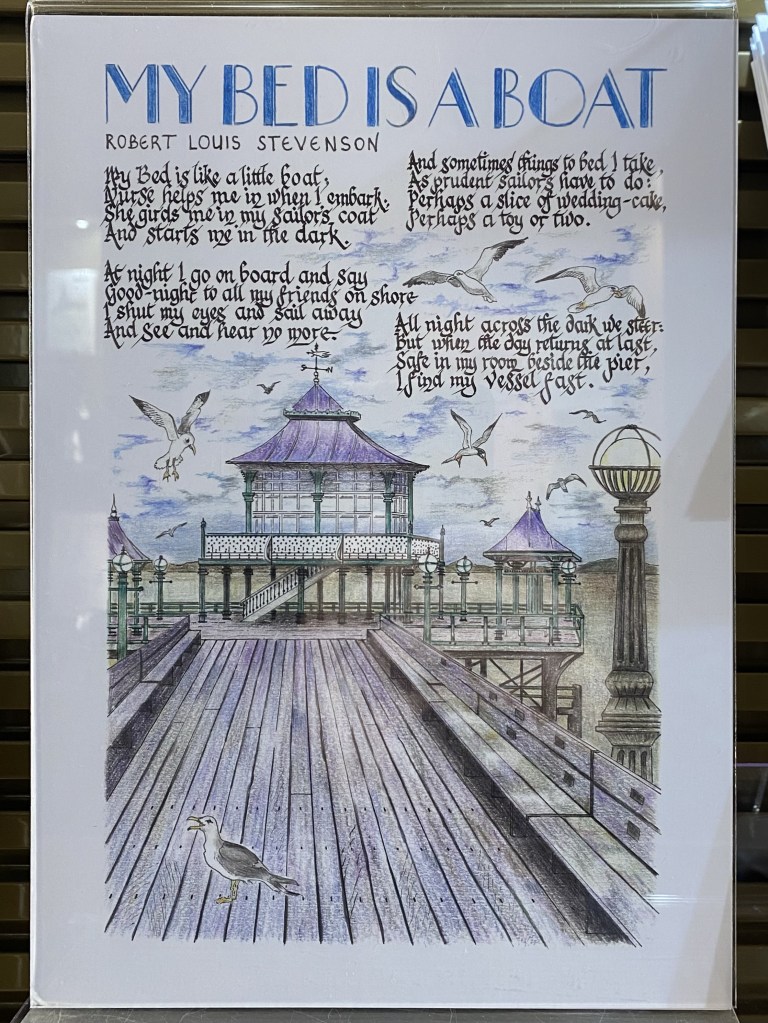 MY BED IS A BOAT
ROBERT LOUIS STEVENSON
My Bed is like a little boat,
Nurse helps me in when I embark.
She girds me in my sailor's coat
And starts me in the dark.
At night I go on board and say
Good-night to all my friends on shore
I shut my eyes and sail away
And see and hear no more.
And sometimes things to bed I take,
As prudent sailors have to do:
Perhaps a slice of wedding-cake,
Perhaps a toy or two.
All night across the dark we steer:
But when the day returns at last,
Safe in my room beside the pier,
I find my vessel fast.